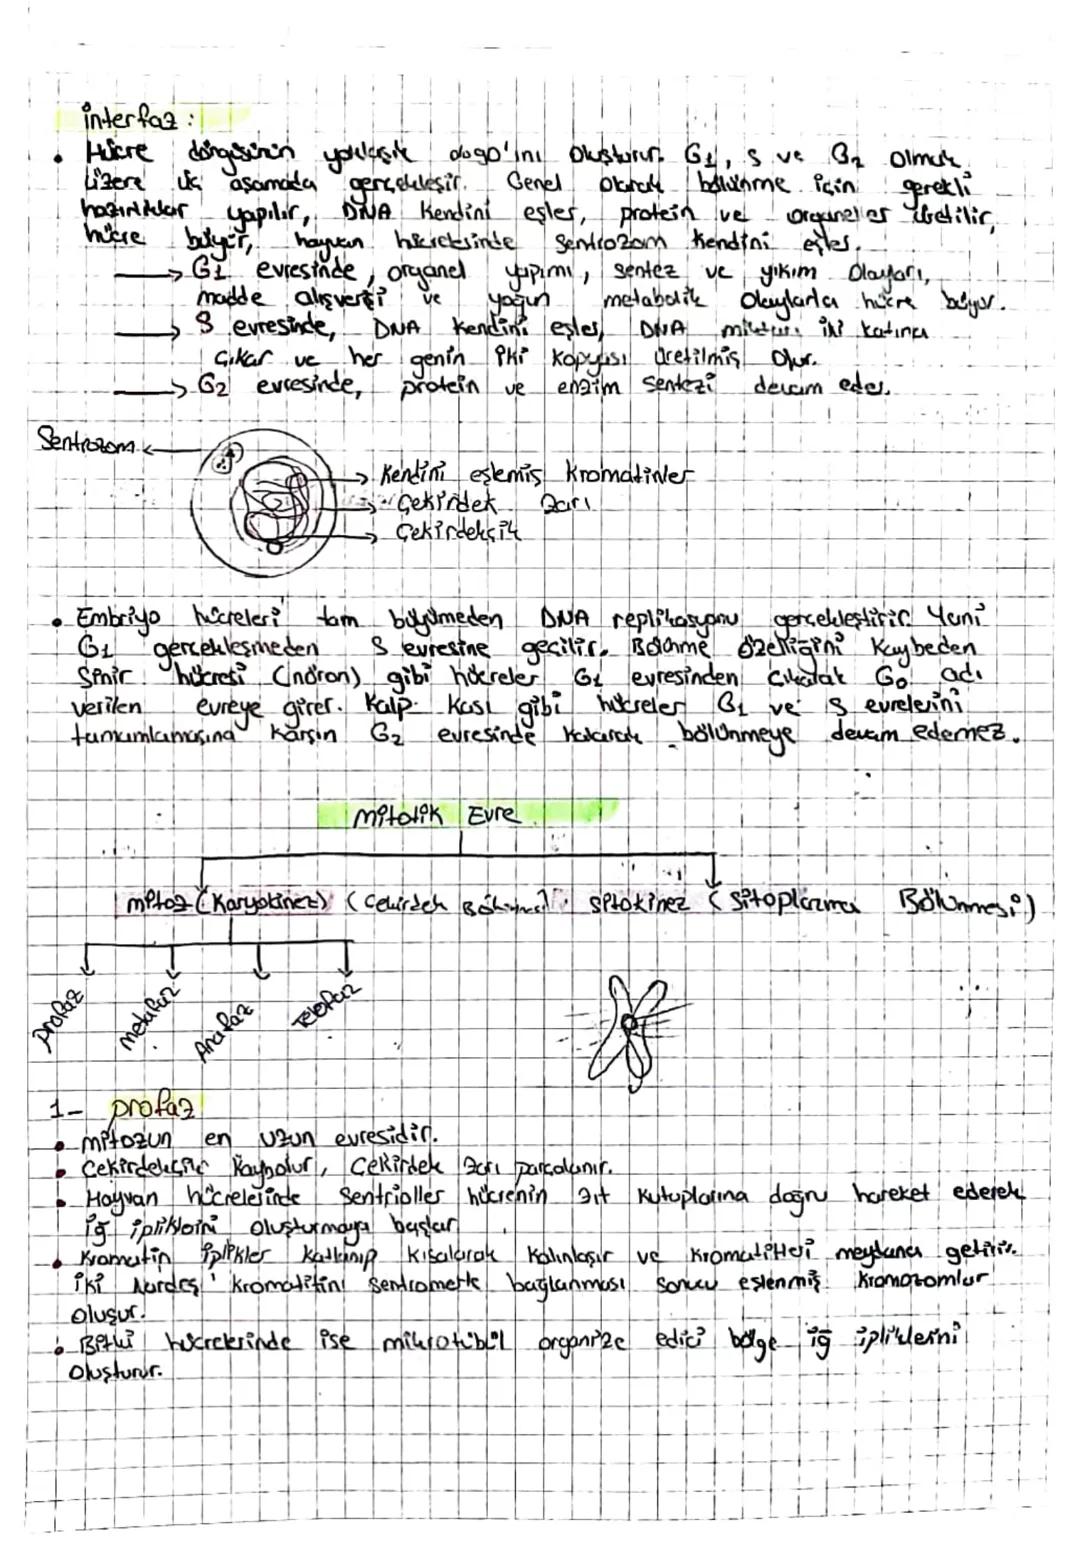 interfaz:
• Hücre döngüsünün yaklaşık %90'ını oluşturur. G1, S ve G2 olmak
üzere üç aşamada gerçekleşir. Genel olarak bölünme için gerekli
hazırlıklar yapılır, DNA kendini eşler, protein ve organeller üretilir,
hücre büyür, hayvan hücrelesinde sentrozom kendini eşler.
→ G1 evresinde, organel yapımı, sentez ve yıkım olayları,
madde alışverişi ve yoğun metabolik olaylarla hücre büyür.
→ S evresinde, DNA kendini eşler, DNA miktarı iki katına
çıkar ve her genin iki kopyası üretilmiş olur.
→ G2 evresinde, protein ve enzim sentezi devam eder.
Sentrozom
Kendini eşlemiş kromatinler
Çekirdek zarı
Çekirdekçik
• Embriyo hücreleri tam büyümeden DNA replikasyonu gerçekleştirir. Yani
G1 gerçekleşmeden S evresine geçilir. Bölünme özelliğini kaybeden
Sinir hücresi (nöron) gibi hücreler G1 evresinden çıkarak G0 adı
verilen evreye girer. Kalp kası gibi hücreler G1 ve S evrelerini
tamamlamasına karşın G2 evresinde kalarak bölünmeye devam edemez.
Mitotik Evre
mitoz (Karyokinez) (Çekirdek Bölünmesi) sitokinez (Sitoplazma Bölünmesi)
Profaz metafaz Anafaz Telofaz
1- profaz
• mitozun en uzun evresidir.
• Çekirdekçik kaybolur, Çekirdek zarı parçalanır.
• Hayvan hücrelerinde sentrioller hücrenin zıt kutuplarına doğru hareket ederek
iğ ipliklerini oluşturmaya başlar
• Kromatin iplikler katlanıp kısalarak kalınlaşır ve kromatitleri meydana getirir.
iki kardeş kromatitini sentromerle bağlanması sonucu eşlenmiş kromozomlar
oluşur.
• Bitki hücrelerinde ise mikrotübül organize edici bölge iğ ipliklerini
oluşturur.